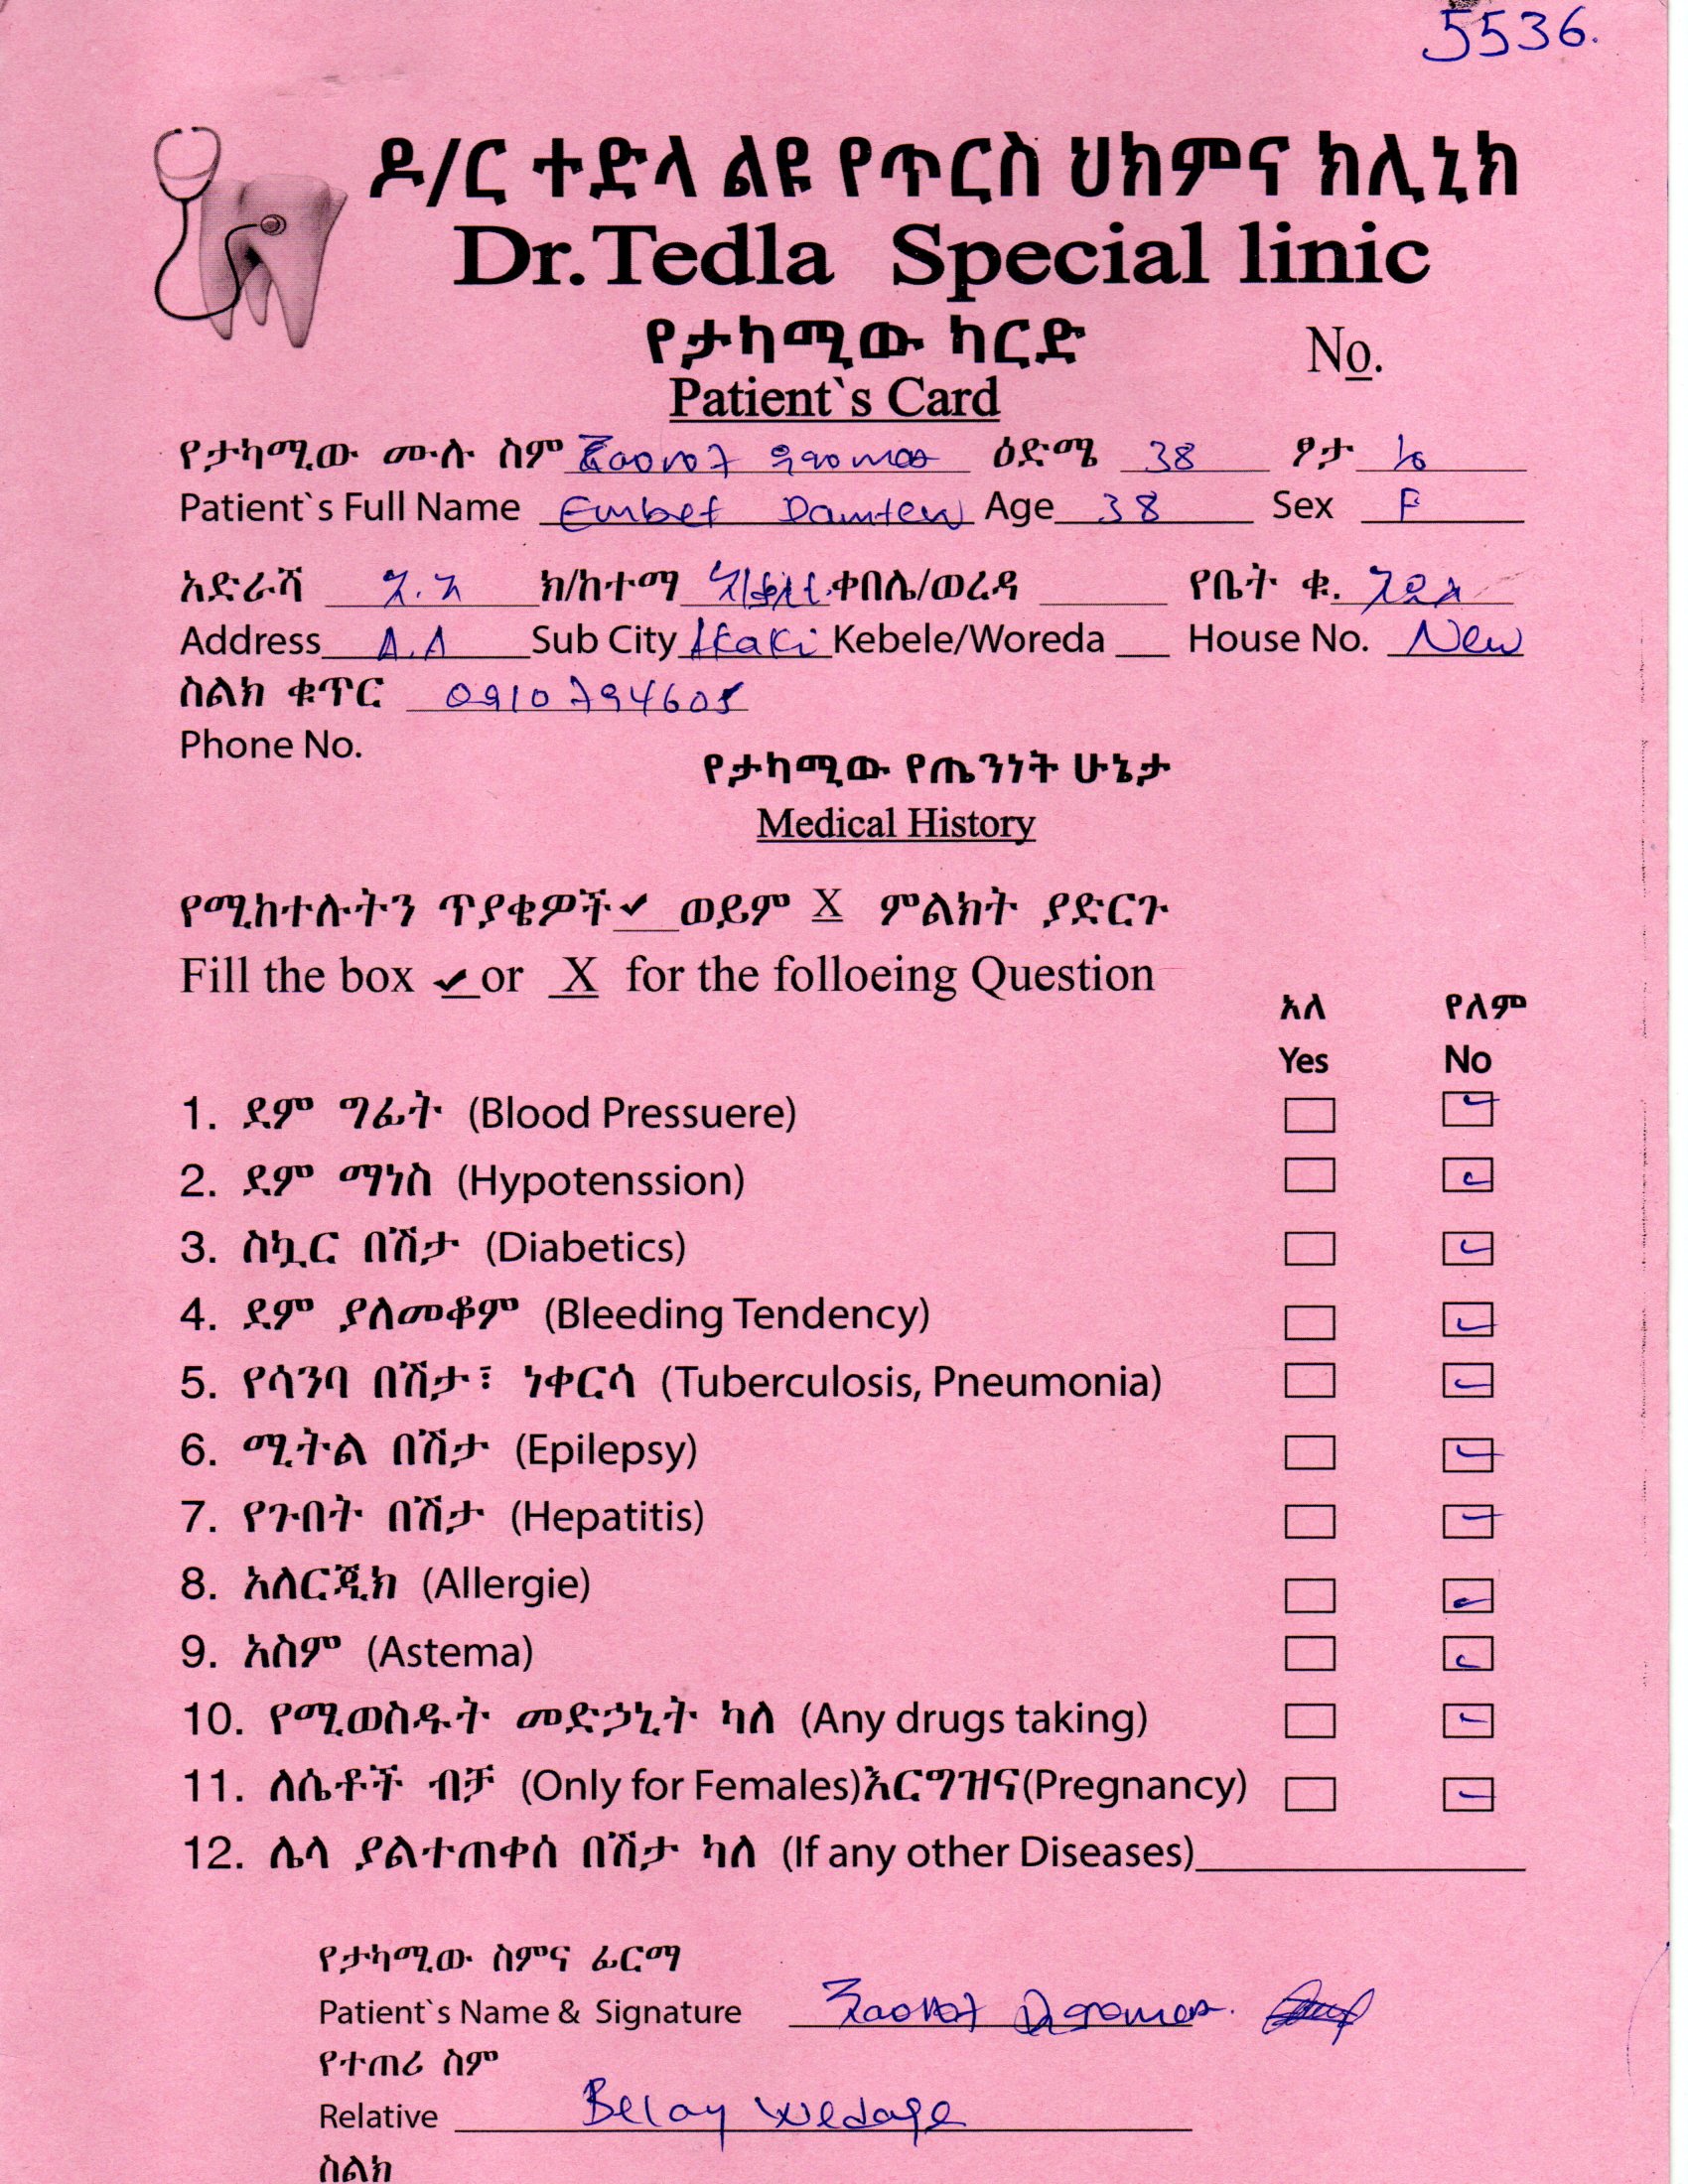 5536.
ዶ/ር ተድላ ልዩ የጥርስ ህክምና ክሊኒክ
Dr.Tedla Special linic
የታካሚው ካርድ No.
Patient`s Card
የታካሚው ሙሉ ስም እመቤት ዳምጠው ዕድሜ 38 ፆታ ሴ
Patient`s Full Name Embet Damtew Age 38 Sex F
አድራሻ አ.አ ክ/ከተማ ቀበሌ/ወረዳ የቤት ቁ. አዲስ
Address A.A Sub City Akaki Kebele/Woreda House No. New
ስልክ ቁጥር 0910794605
Phone No.
የታካሚው የጤንነት ሁኔታ
Medical History
የሚከተሉትን ጥያቄዎች ✔ ወይም X ምልክት ያድርጉ
Fill the box ✔ or X for the folloeing Question
አለ የለም
Yes No
1. ደም ግፊት (Blood Pressuere)
2. ደም ማነስ (Hypotenssion)
3. ስኳር በሽታ (Diabetics)
4. ደም ያለመቆም (Bleeding Tendency)
5. የሳንባ በሽታ፣ ነቀርሳ (Tuberculosis, Pneumonia)
6. ሚትል በሽታ (Epilepsy)
7. የጉበት በሽታ (Hepatitis)
8. አለርጂክ (Allergie)
9. አስም (Astema)
10. የሚወስዱት መድኃኒት ካለ (Any drugs taking)
11. ለሴቶች ብቻ (Only for Females)እርግዝና(Pregnancy)
12. ሌላ ያልተጠቀሰ በሽታ ካለ (If any other Diseases)
የታካሚው ስምና ፊርማ
Patient`s Name & Signature እመቤት ዳምጠው
የተጠሪ ስም
Relative Belay
ስልክ